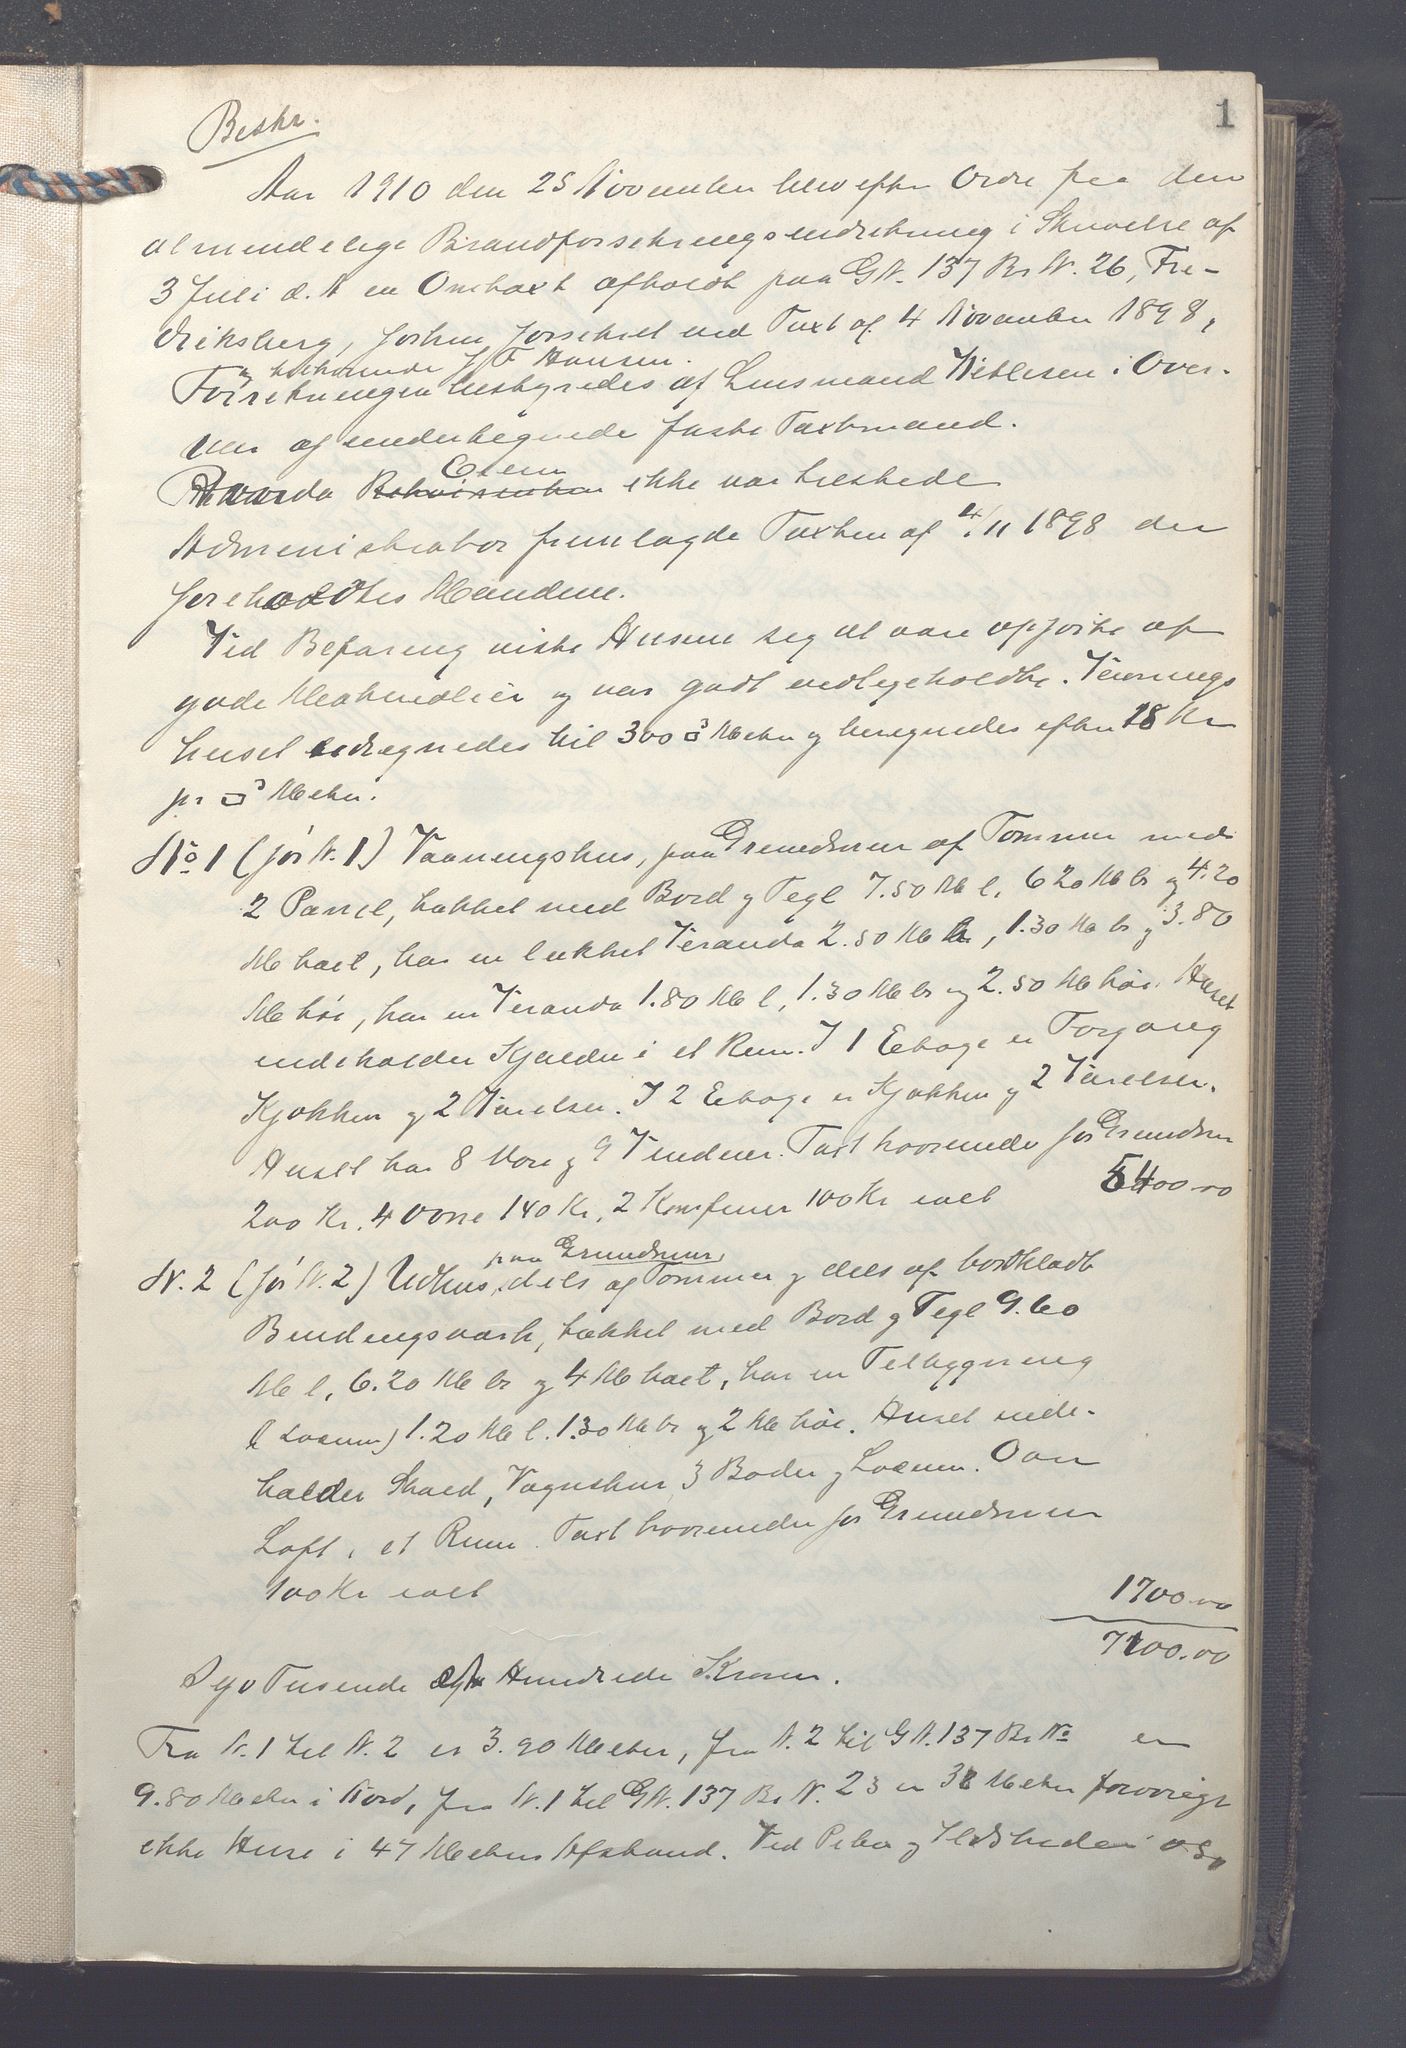 1
Beskr.
Aar 1910 den 25 November blev efter Ordre fra den
almindelige Brandforsikringsindretning i Skrivelse af
3 Juli d. A en Omtaxt afholdt paa GN. 137 Br N. 26, Fre-
driksberg, forhen forsikret ved Taxt af 4 November 1898,
tilhørende J F Hansen.
Forretningen bestyredes af Lensmand Wiblesen i Over-
vær af undertegnede faste Taxtmænd.
da Eieren ikke var tilstede
Administrator fremlagde Taxten af 4/11 1898 der
foreholdtes Mændene.
Ved Befaring viste Husene sig at være opførte af
gode Materialier og var godt vedligeholdte. Vaanings
huset udregnedes til 300 □³ Meter og beregnedes efter 18 Kr
pr □³ Meter.
No 1 (før N. 1) Vaaningshus, paa Grundmur af Tømmer med
2 Panel, tækket med Bord og Tegl 7.50 M l. 6 20 M br og 4.20
M høit, har en lukket Veranda 2.50 M l, 1.30 M br og 3.80
M høi, har en Veranda 1.80 M l, 1.30 M br og 2.50 M høi. Huset
indeholder Kjælder i et Rum. I 1 Etage er Forgang
Kjøkken og 2 Værelser. I 2 Etage er Kjøkken og 2 Værelser.
Huset har 8 Døre og 9 Vinduer. Taxt hvorunder for Grundmur
200 Kr. 4 Ovne 140 Kr, 2 Komfurer 100 Kr ialt 5400.00
N. 2 (før N. 2) Udhus, paa Grundmur, dels af Tømmer og dels af bordklædt
Bindingsværk, tækket med Bord og Tegl 9.60
M l, 6.20 M br og 4 M høit, har en Tilbygning
(Locum) 1.20 M l. 1.30 M br og 2 M høi. Huset inde-
holder Skaal, Vognskur 3 Boder og Locum. Oven
Loft i et Rum. Taxt hvorunder for Grundmur
100 Kr ialt 1700.00
7100.00
Syv Tusende et Hundrede Kroner.
Fra N. 1 til N. 2 er 3.90 Meter, fra N. 2 til GN. 137 Br No er
9.80 Meter i Nord, fra N. 1 til GN. 137 Br N. 23 er 38 Meter forøvrigt
ikke Huse i 47 Meters Afstand. Ved Piber og Ildsteder o.s.v